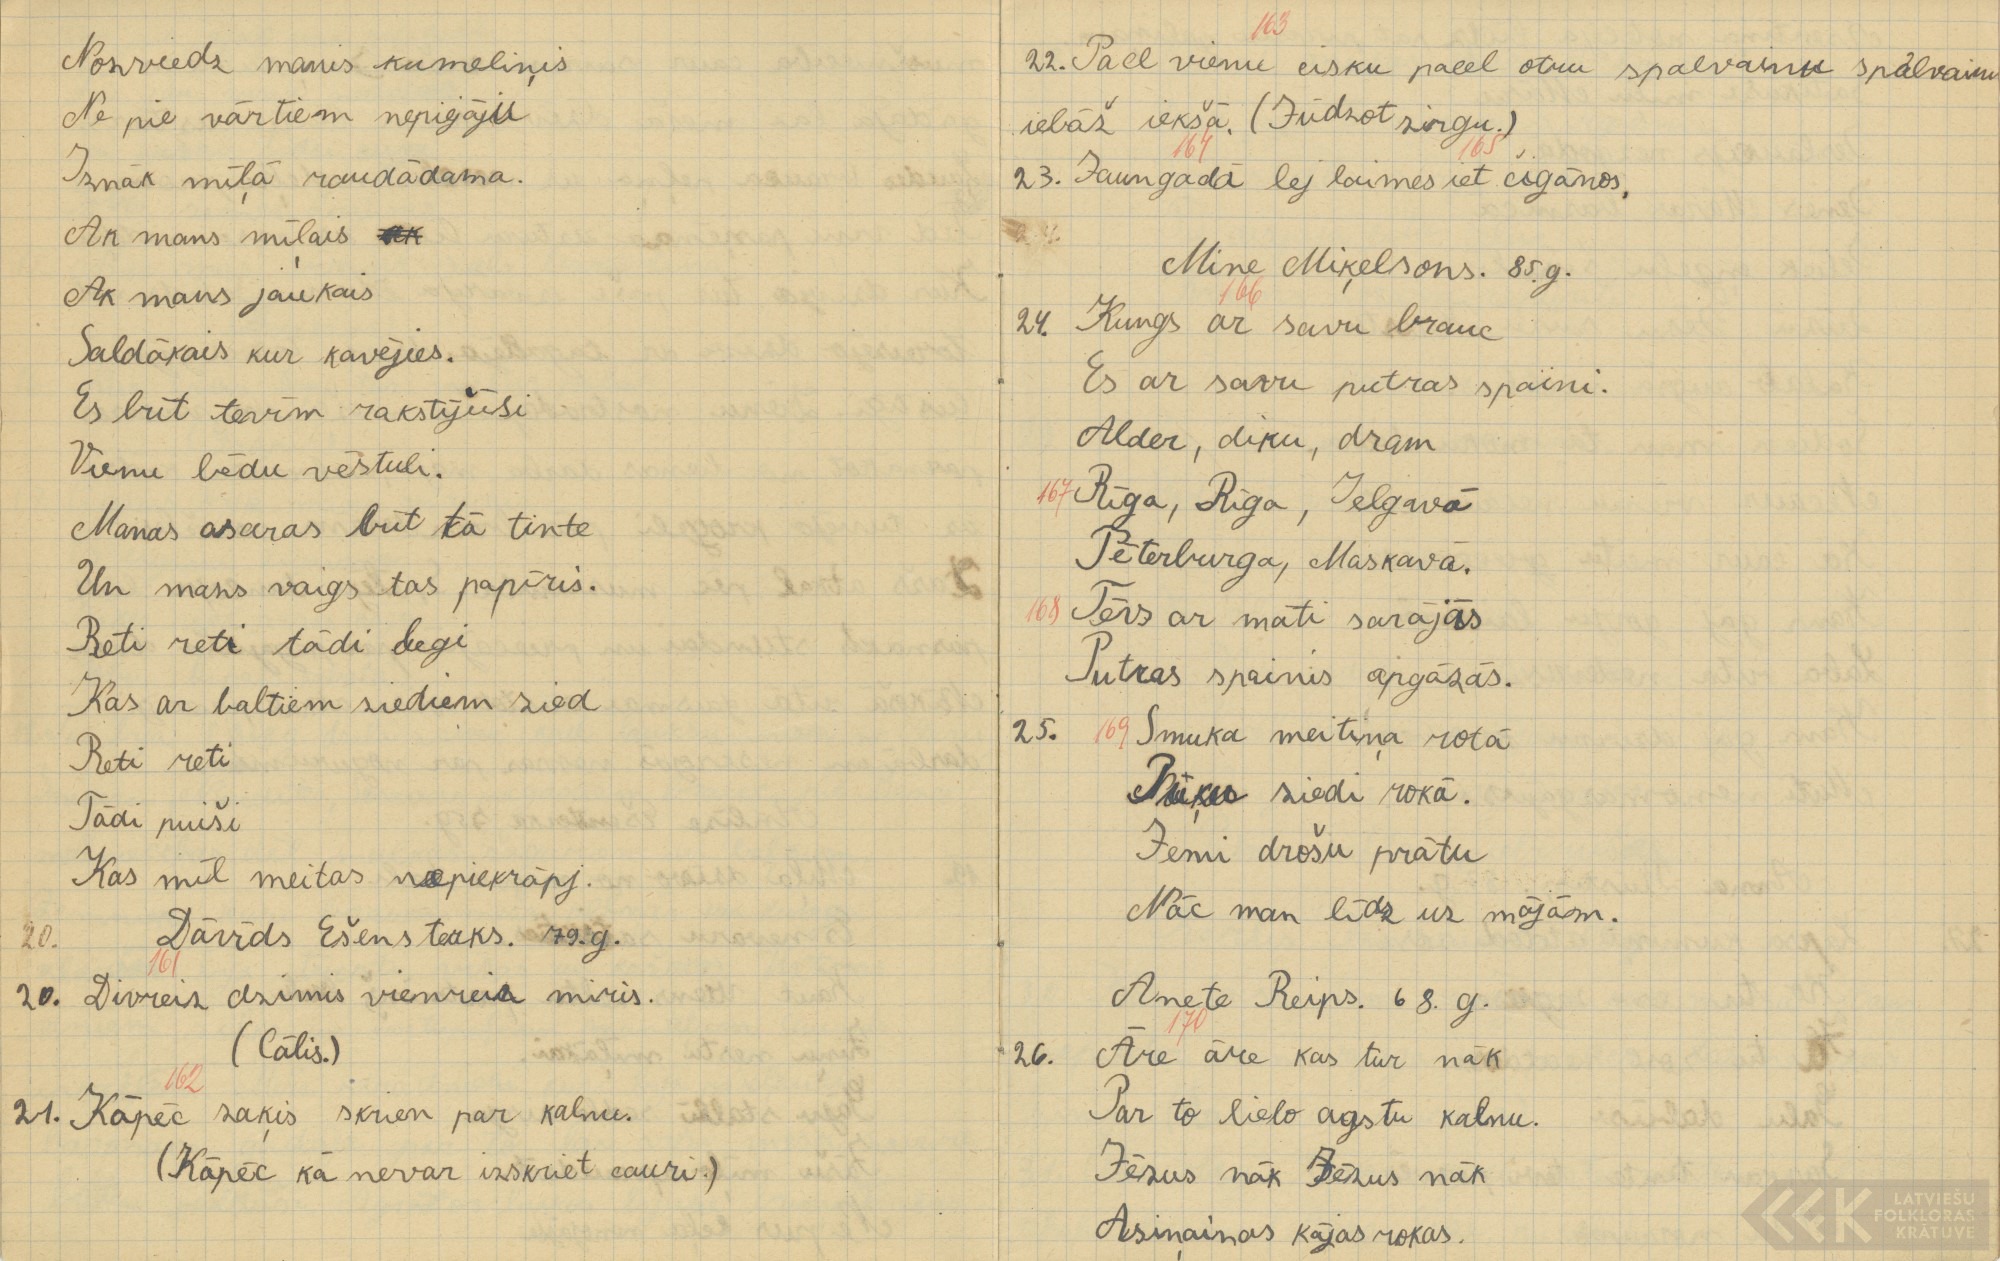 Nozviedz manis kumeliņis
Ne pie vārtiem nepigāju
Iznāk mīļā raudādama.
Ak mans mīļais
Ak mans jaukais
Saldākais kur kavējies.
Es būt tevim rakstījūsi
Vienu bēdu vēstuli.
Manas asaras būt kā tinte
Un mans vaigs tas papīris.
Reti reti tādi begi
Kas ar baltiem ziediem zied
Reti reti
Tādi puiši
Kas mīl meitas nepiekrāpj.
20. Dāvīds Ešenstaks. 79.g.
161
20. Divreiz dzimis vienreiz miris.
(Cālis.)
162
21. Kāpēc zaķis skrien par kalnu.
(Kāpēc kā nevar izskriet cauri.)
163
22. Pacel vienu cisku pacel otru spalvainu spalvainu
iebāž iekšā. (Jūdzot zirgu.)
164 165
23. Jaungadā lej laimes iet čigānos.
24.
Mine Miķelsons. 85.g.
166
24. Kungs ar savu brauc
Es ar savu putras spaini.
Alder, diku, dram
167 Rīga, Rīga, Jelgavā
Pēterburga, Maskavā.
168 Tēvs ar māti sarājās
Putras spainis apgāzās.
25. 169 Smuka meitiņa rotā
Puķu ziedi rokā.
Jemi drošu prātu
Nāc man līdz uz mājām.
Anete Reips. 68. g.
170
26. Āre āre kas tur nāk
Par to lielo agstu kalnu.
Jēzus nāk Jēzus nāk
Asiņainas kājas rokas.
LATVIEŠU
FOLKLORAS
KRĀTUVE